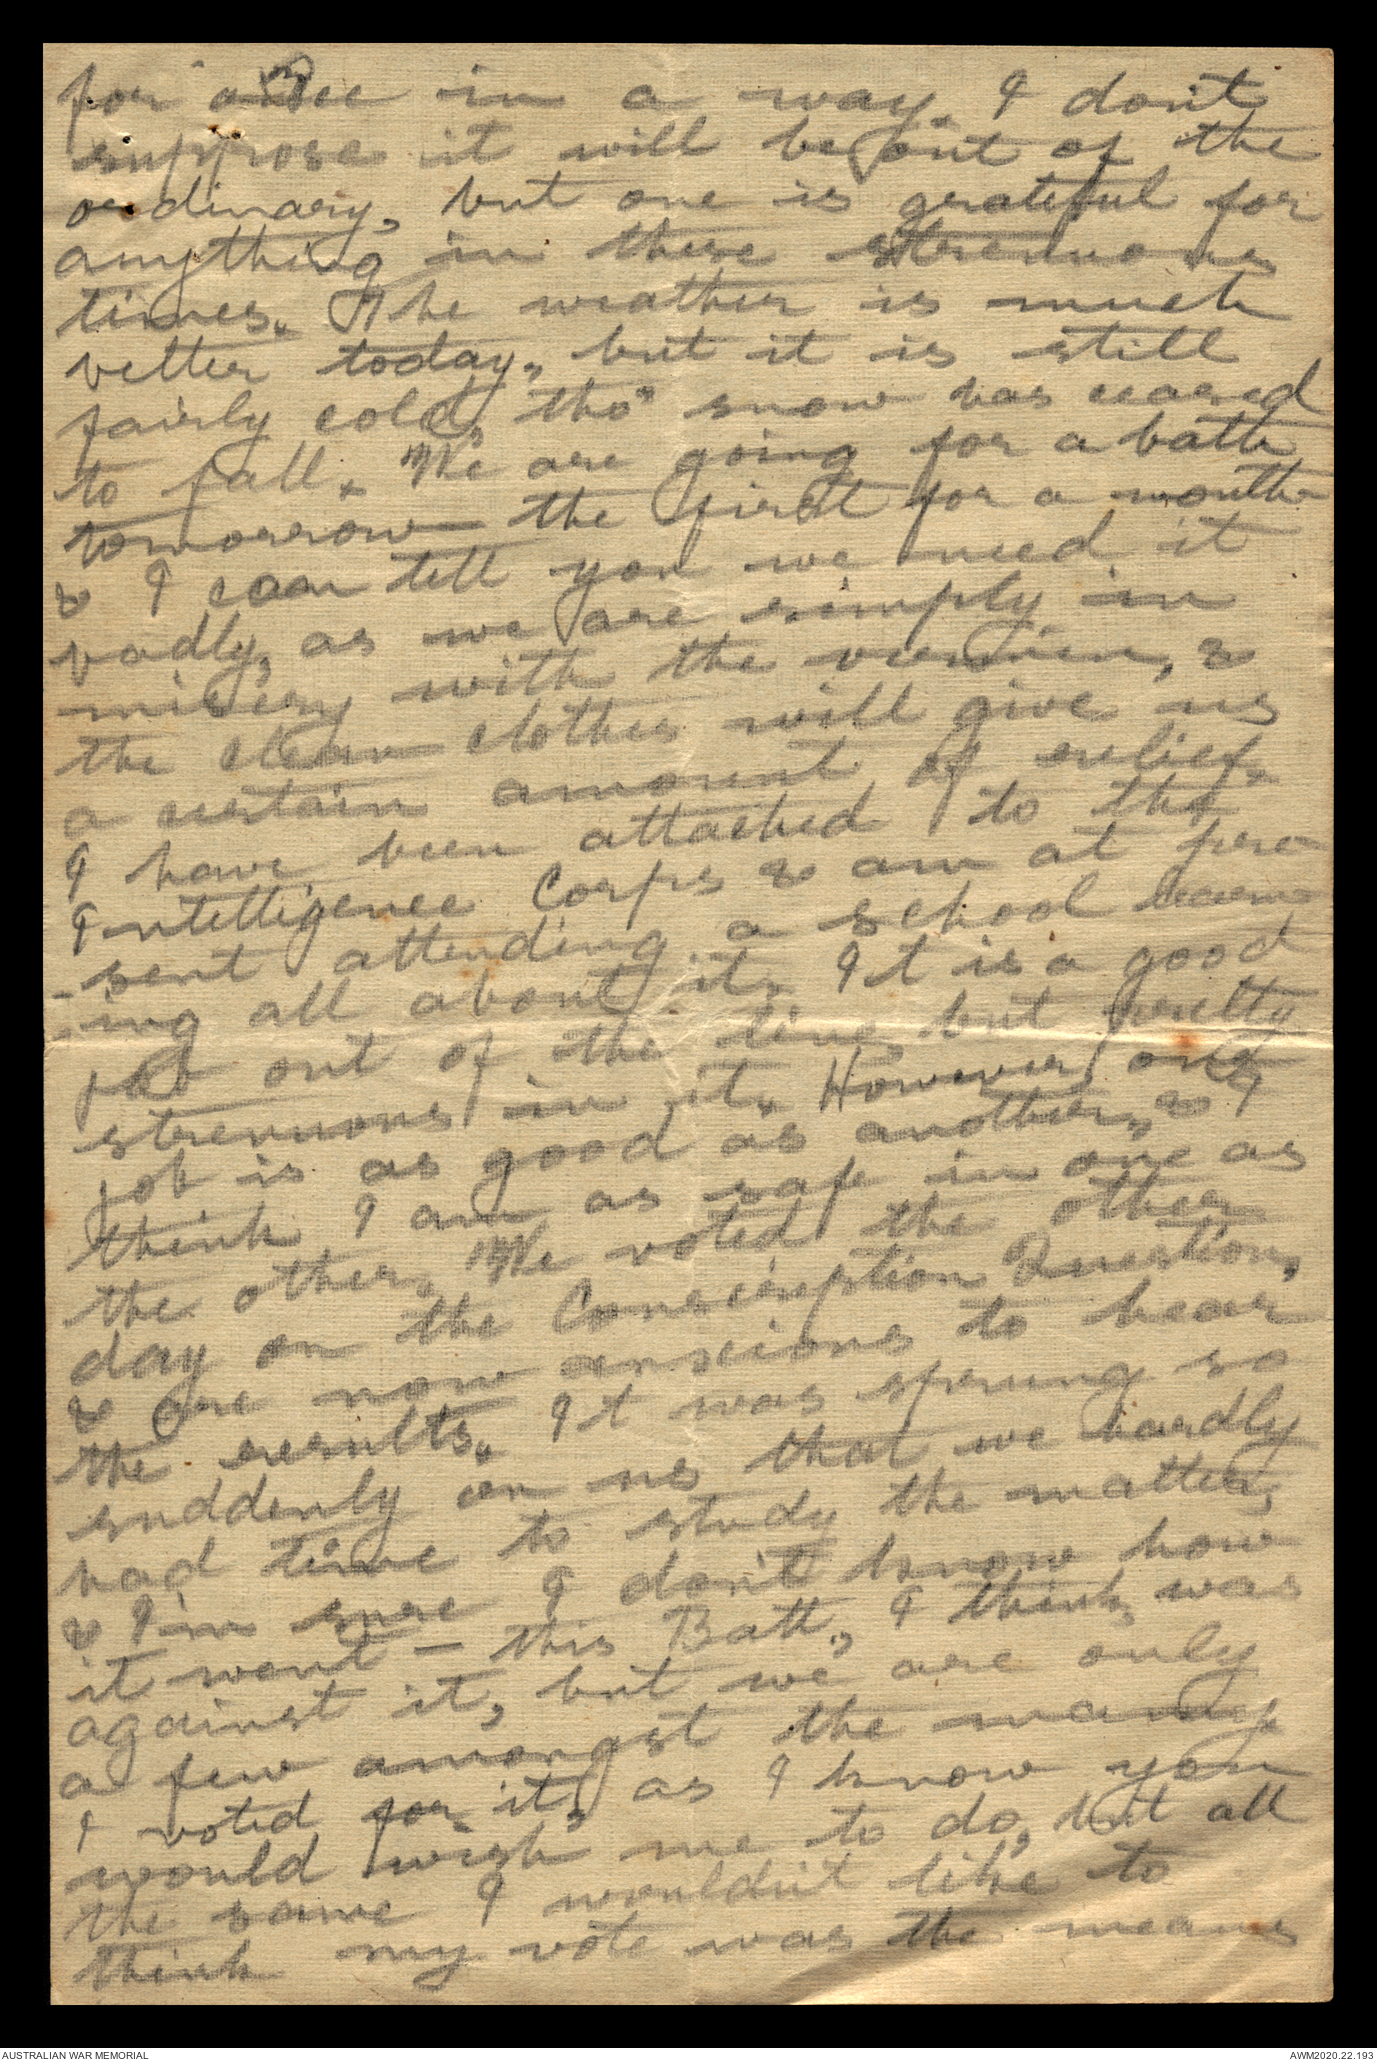 for us all in a way. I don't
suppose it will be out of the
ordinary, but one is grateful for
anything in these strenuous
times. The weather is much
better today, but it is still
fairly cold, tho' snow has ceased
to fall. We are going for a bath
tomorrow the first for a month
& I can tell you we need it
badly, as we are simply in
misery with the vermin, &
the clean clothes will give us
a certain amount of relief.
I have been attached to the
Intelligence Corps & am at pre-
-sent attending a school learn-
-ing all about it. It is a good
job out of the line, but pretty
strenuous in it. However, one
job is as good as another, & I
think I am as safe in one as
the other. We voted the other
day on the Conscription Question,
& are now anxious to hear
the results. It was sprung so
suddenly on us that we hardly
had time to study the matter,
& I'm sure I don't know how
it went - this Batt., I think, was
against it, but we are only
a few amongst the many.
I voted for it, as I know you
would wish me to do, but all
the same I wouldn't like to
think my vote was the means
AUSTRALIAN WAR MEMORIAL
AWM2020.22.193